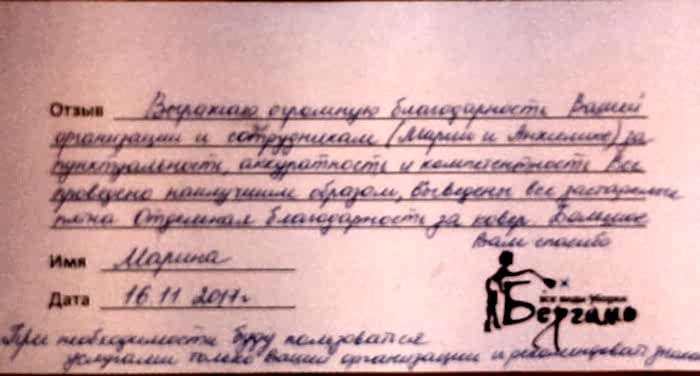 Отзыв Выражаю огромную благодарность Вашей
организации и сотрудникам (Марии и Анжелике) за
пунктуальность, аккуратность и компетентность Все
проведено наилучшим образом, выведены все застарелые
пятна Отдельная благодарность за ковер. Большое
Вам спасибо
Имя Марина
Дата 16 11 2017г
все виды уборки
Бергамо
При необходимости буду пользоваться
услугами только Вашей организации и рекомендовать